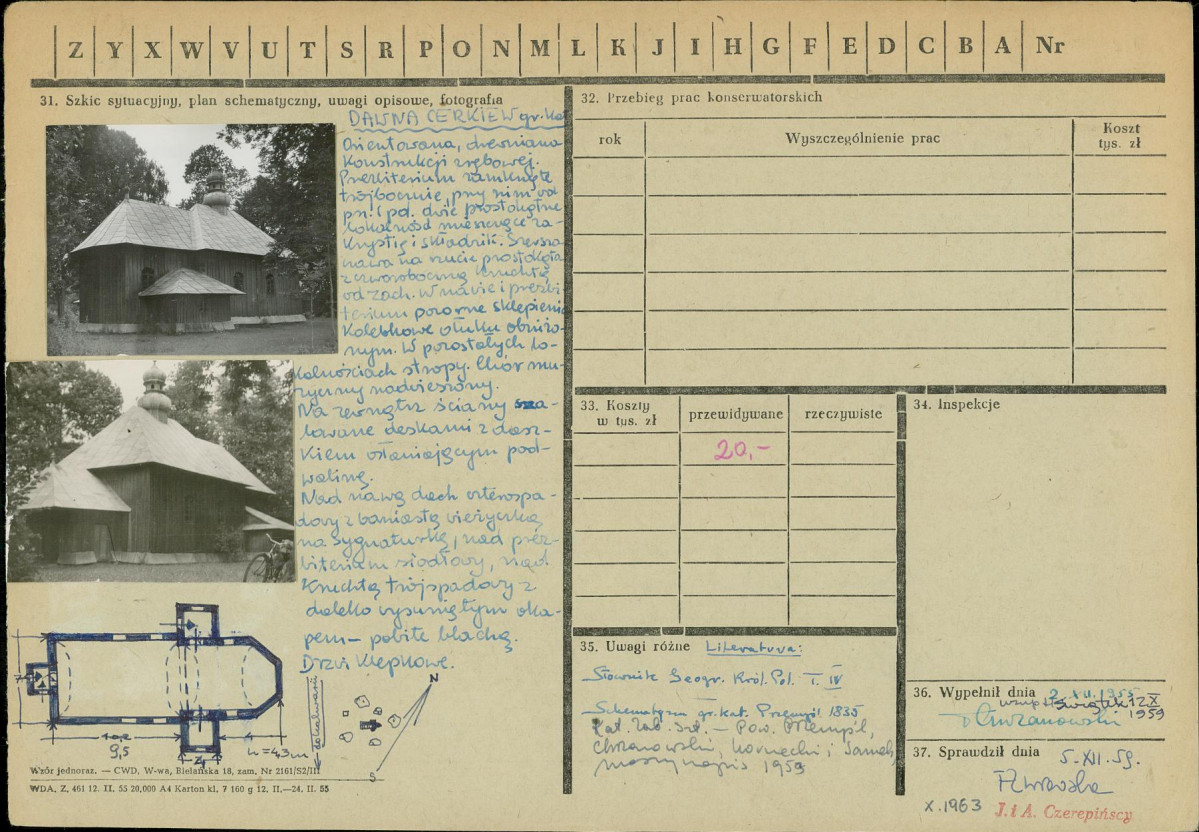 Z Y X W V U T S R P O N M L K J I H G F E D C B A Nr
31. Szkic sytuacyjny, plan schematyczny, uwagi opisowe, fotografia
DAWNA CERKIEW gr. kat
Orientowana, drewniana
Konstrukcji zrębowej.
Prezbiterium zamknięte
trójbocznie, przy nim od
pn. i pd. dwie prostokątne
lokalność mieszczące za-
krystię i składzik. Szersza
nawa na rzucie prostokąta
z czworoboczną kruchtą
od zach. W nawie i prezbi-
terium pozorne sklepienie
Kolebkowe o łuku obniżo-
nym. W pozostałych lo-
kalnościach stropy. Chór mu-
zyczny nadwieszony.
Na zewnątrz ściany sza-
lowane deskami z dasz-
kiem osłaniającym pod-
walinę.
Nad nawą dach czterospa-
dowy z baniastą wieżyczką
na sygnaturkę, nad prez-
biterium siodłowy, nad
kruchtą trójspadowy z
daleko wysuniętym oka-
pem – pobite blachą.
Drzwi klepkowe.
7
9,5
4
4
h = 43m
N
S
Wzór jednoraz. — CWD, W-wa, Bielańska 18, zam. Nr 2161/S2/III
WDA. Z. 461 12. II. 55 20.000 A4 Karton kl. 7 160 g 12. II.—24. II. 55
32. Przebieg prac konserwatorskich
rok
Wyszczególnienie prac
Koszt
tys. zł
33. Koszty
w tys. zł
przewidywane
rzeczywiste
20,-
34. Inspekcje
35. Uwagi różne Literatura:
Słownik Geogr. Król. Pol. T. IV
Schematyzm gr. kat. Przemyśl 1835
Kat. Zab. Szt. – Pow. Przemyśl,
Chrzanowski, Kornecki i Samek,
maszynopis 1959
36. Wypełnił dnia 2. XII. 1955
12 X
1959
Chrzanowski
37. Sprawdził dnia 5. XII. 59.
X. 1963
J. i A. Czerepińscy